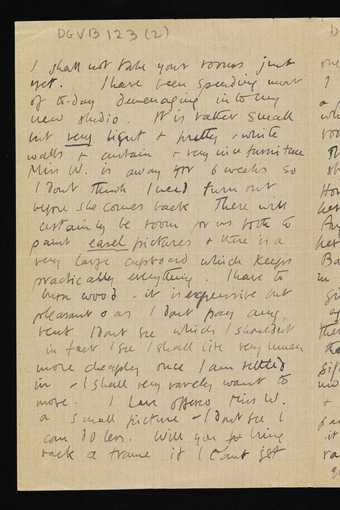 DGVB 123 (2)
I shall not take your rooms just
yet. I have been spending most
of to-day demenaging into my
new studio. It is rather small
but very light & pretty, white
walls & curtain & very nice furniture
Miss W. is away for 6 weeks so
I dont think I need turn out
before she comes back There will
certainly be room for us both to
paint easel pictures & there is a
very large cupboard which keeps
practically everything. I have to
burn wood - it is expensive but
pleasant & as I dont pay any
rent I dont see why I shouldnt
in fact I see I shall live very much
more cheaply once I am settled
in - I shall very rarely want to
move. I have offered Miss W.
a small picture - I dont see I
can do less. Will you bring
back a frame if I cant get